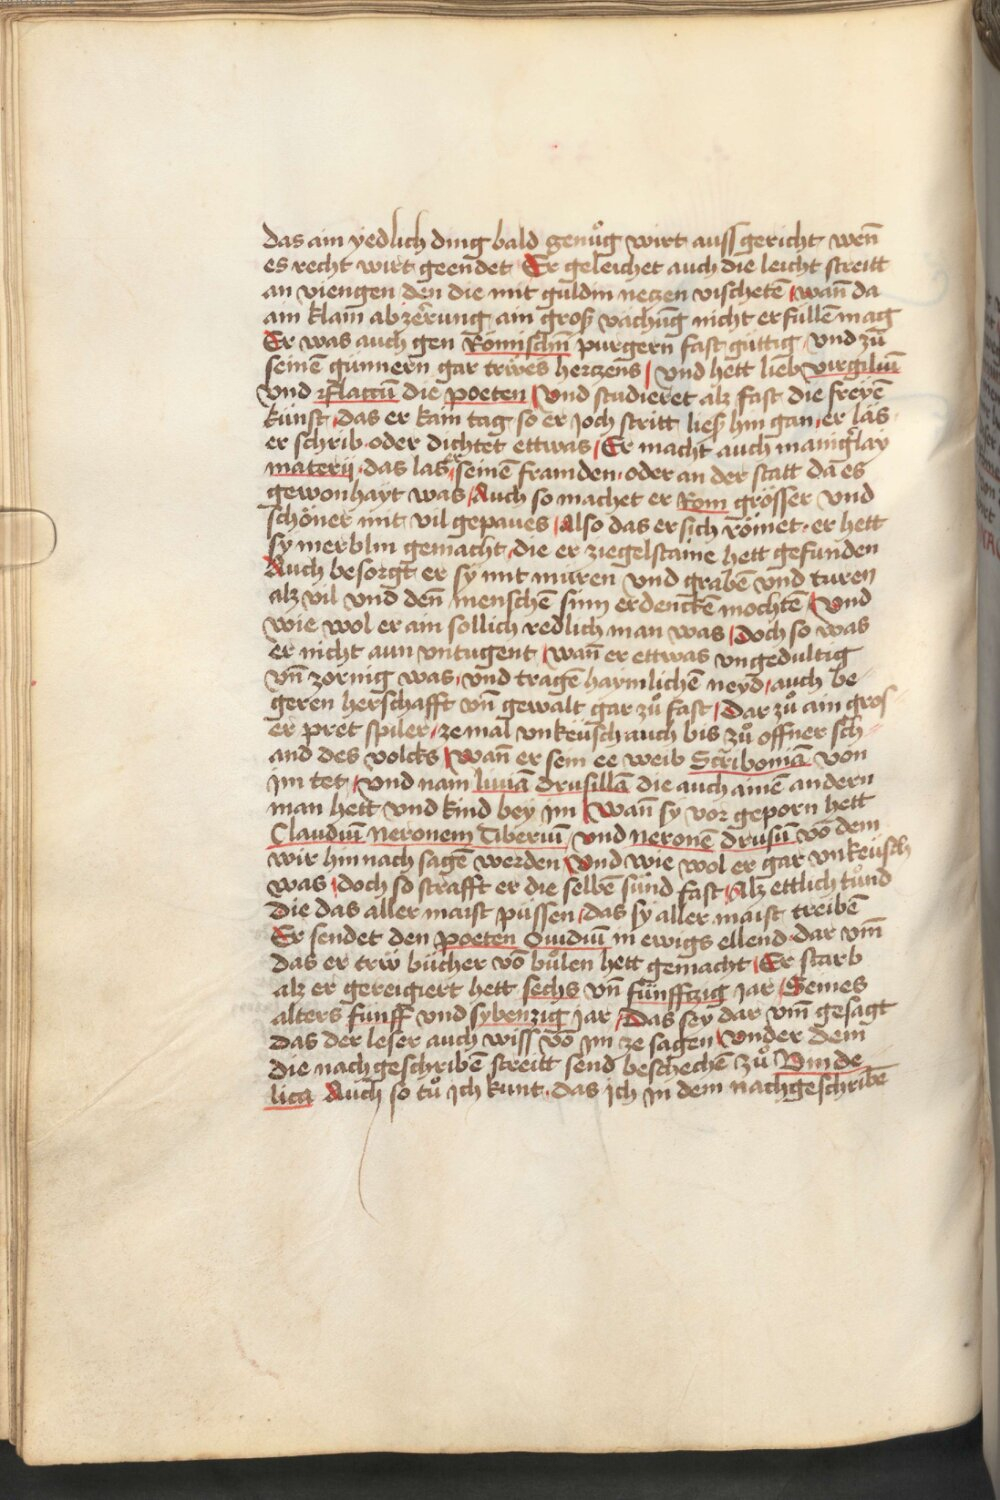 das ain yedlich ding bald genůg wirt auss gericht wen̄
es recht wirt geendet Er geleichet auch die leicht streitt
an viengen den die mit guldin netzen vischetē wan̄ da
ain klain̄ abzerung ain groß vachūg nicht erfüllen mag
Er was auch gen Römischn̄ purgern fast güttig und zū
seinē günnern gar triwes hertzens und hett lieb virgiliū
und Flaccū die poeten Und studieret alz fast die freyē
künst das er kain tag so er joch stritt ließ hin gan er las
er schrib oder dichtet ettwas Er macht auch manigͬlay
materij das las er seinē frainden oder an der statt da es
gewonhayt was Auch so machet er Rom grösser und
schöner mit vil gepaues Also das er sich römet er hett
sy merblin gemacht die er ziegelstaine hett gefunden
Auch besorgt er sy mit muren und grabē und turen
alz vil und den̄ menschē sinn erdenckē mochtē Und
wie wol er ain sollich redlich man was Doch so was
er nicht aun untugent wan̄ er ettwas ungedultig
un̄ zornig was und tragē haymlichē neyd auch be
geren herschafft un̄ gewalt gar zů fast Dar zů ain gros
er pret spiler ze mal unkeusch auch bis zů offner sch
and des volcks Wan̄ er sein ee weib Scriboniā von
im tet Und nam liviā Drusillā die auch ainē andern
man hett und kind bey im Wan̄ sy vor geporn hett
Claudiū Neronem Tiberiū und Neronē Drusū vō dem
wir hin nach sagē werden Und wie wol er gar unkeusch
was Doch so strafft er die selbē sünd fast Alz ettlich tůnd
Die das aller maist püssen das sy aller maist treibē
Er sendet den poeten Ouidiū in ewigs ellend dar um̄
das er trw bücher vō bůlen hett gemacht Er starb
alz er gereigiert hett sechs un̄ fünfftzig jar Seines
alters fünff und sybenzig jar Das sey dar um̄ gesagt
das der leser auch wiss vō im ze sagen Under dem
die nach geschribē streitt send beschechen zů Vinde
lica Auch so tů ich kunt das ich in dem nachgeschribē